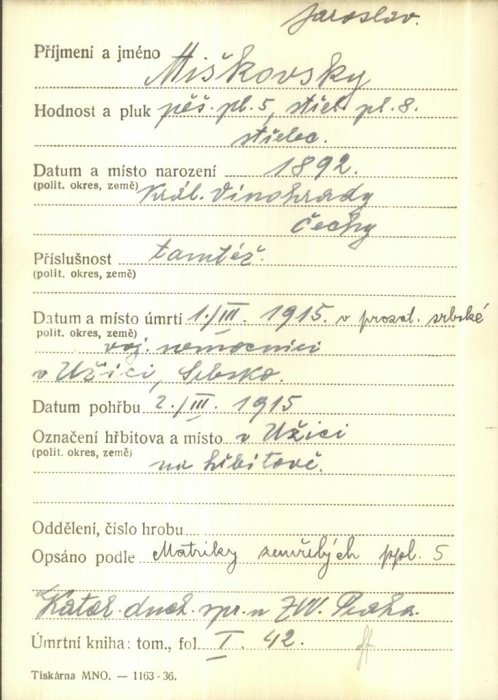 Jaroslav.
Příjmení a jméno Miškovsky
Hodnost a pluk pěš. pl. 5, střel. pl. 8.
střelec.
Datum a místo narození 1892.
(polit. okres, země) Král. Vinohrady
Čechy
Příslušnost tamtéž.
(polit. okres, země)
Datum a místo úmrtí 1./III. 1915. v prozat. srbské
polit. okres, země) voj. nemocnici
v Užici, Srbsko.
Datum pohřbu 2./III. 1915
Označení hřbitova a místo v Užici
(polit. okres, země) na hřbitově.
Oddělení, číslo hrobu
Opsáno podle Matriky zemřelých ppl. 5
Katol. duch. spr. u ZVV. Praha.
Úmrtní kniha: tom., fol. I. 42.
Tiskárna MNO. — 1163-36.